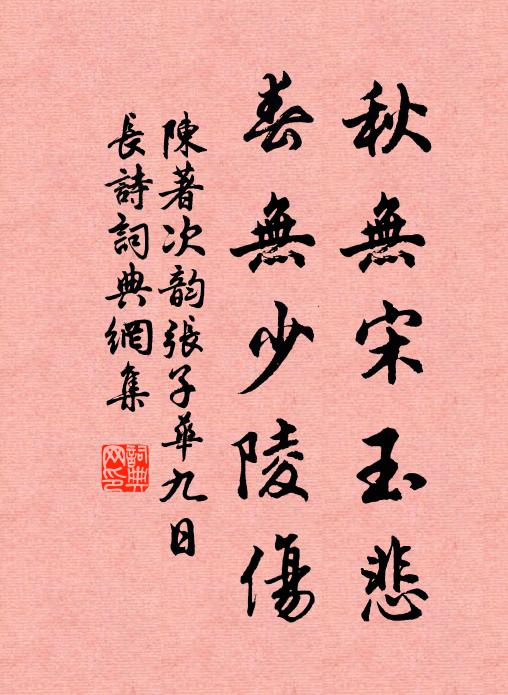 秋無宋玉悲
春無少陵傷
陳著次韵張子華九日
長詩詞典網集
詞典网印